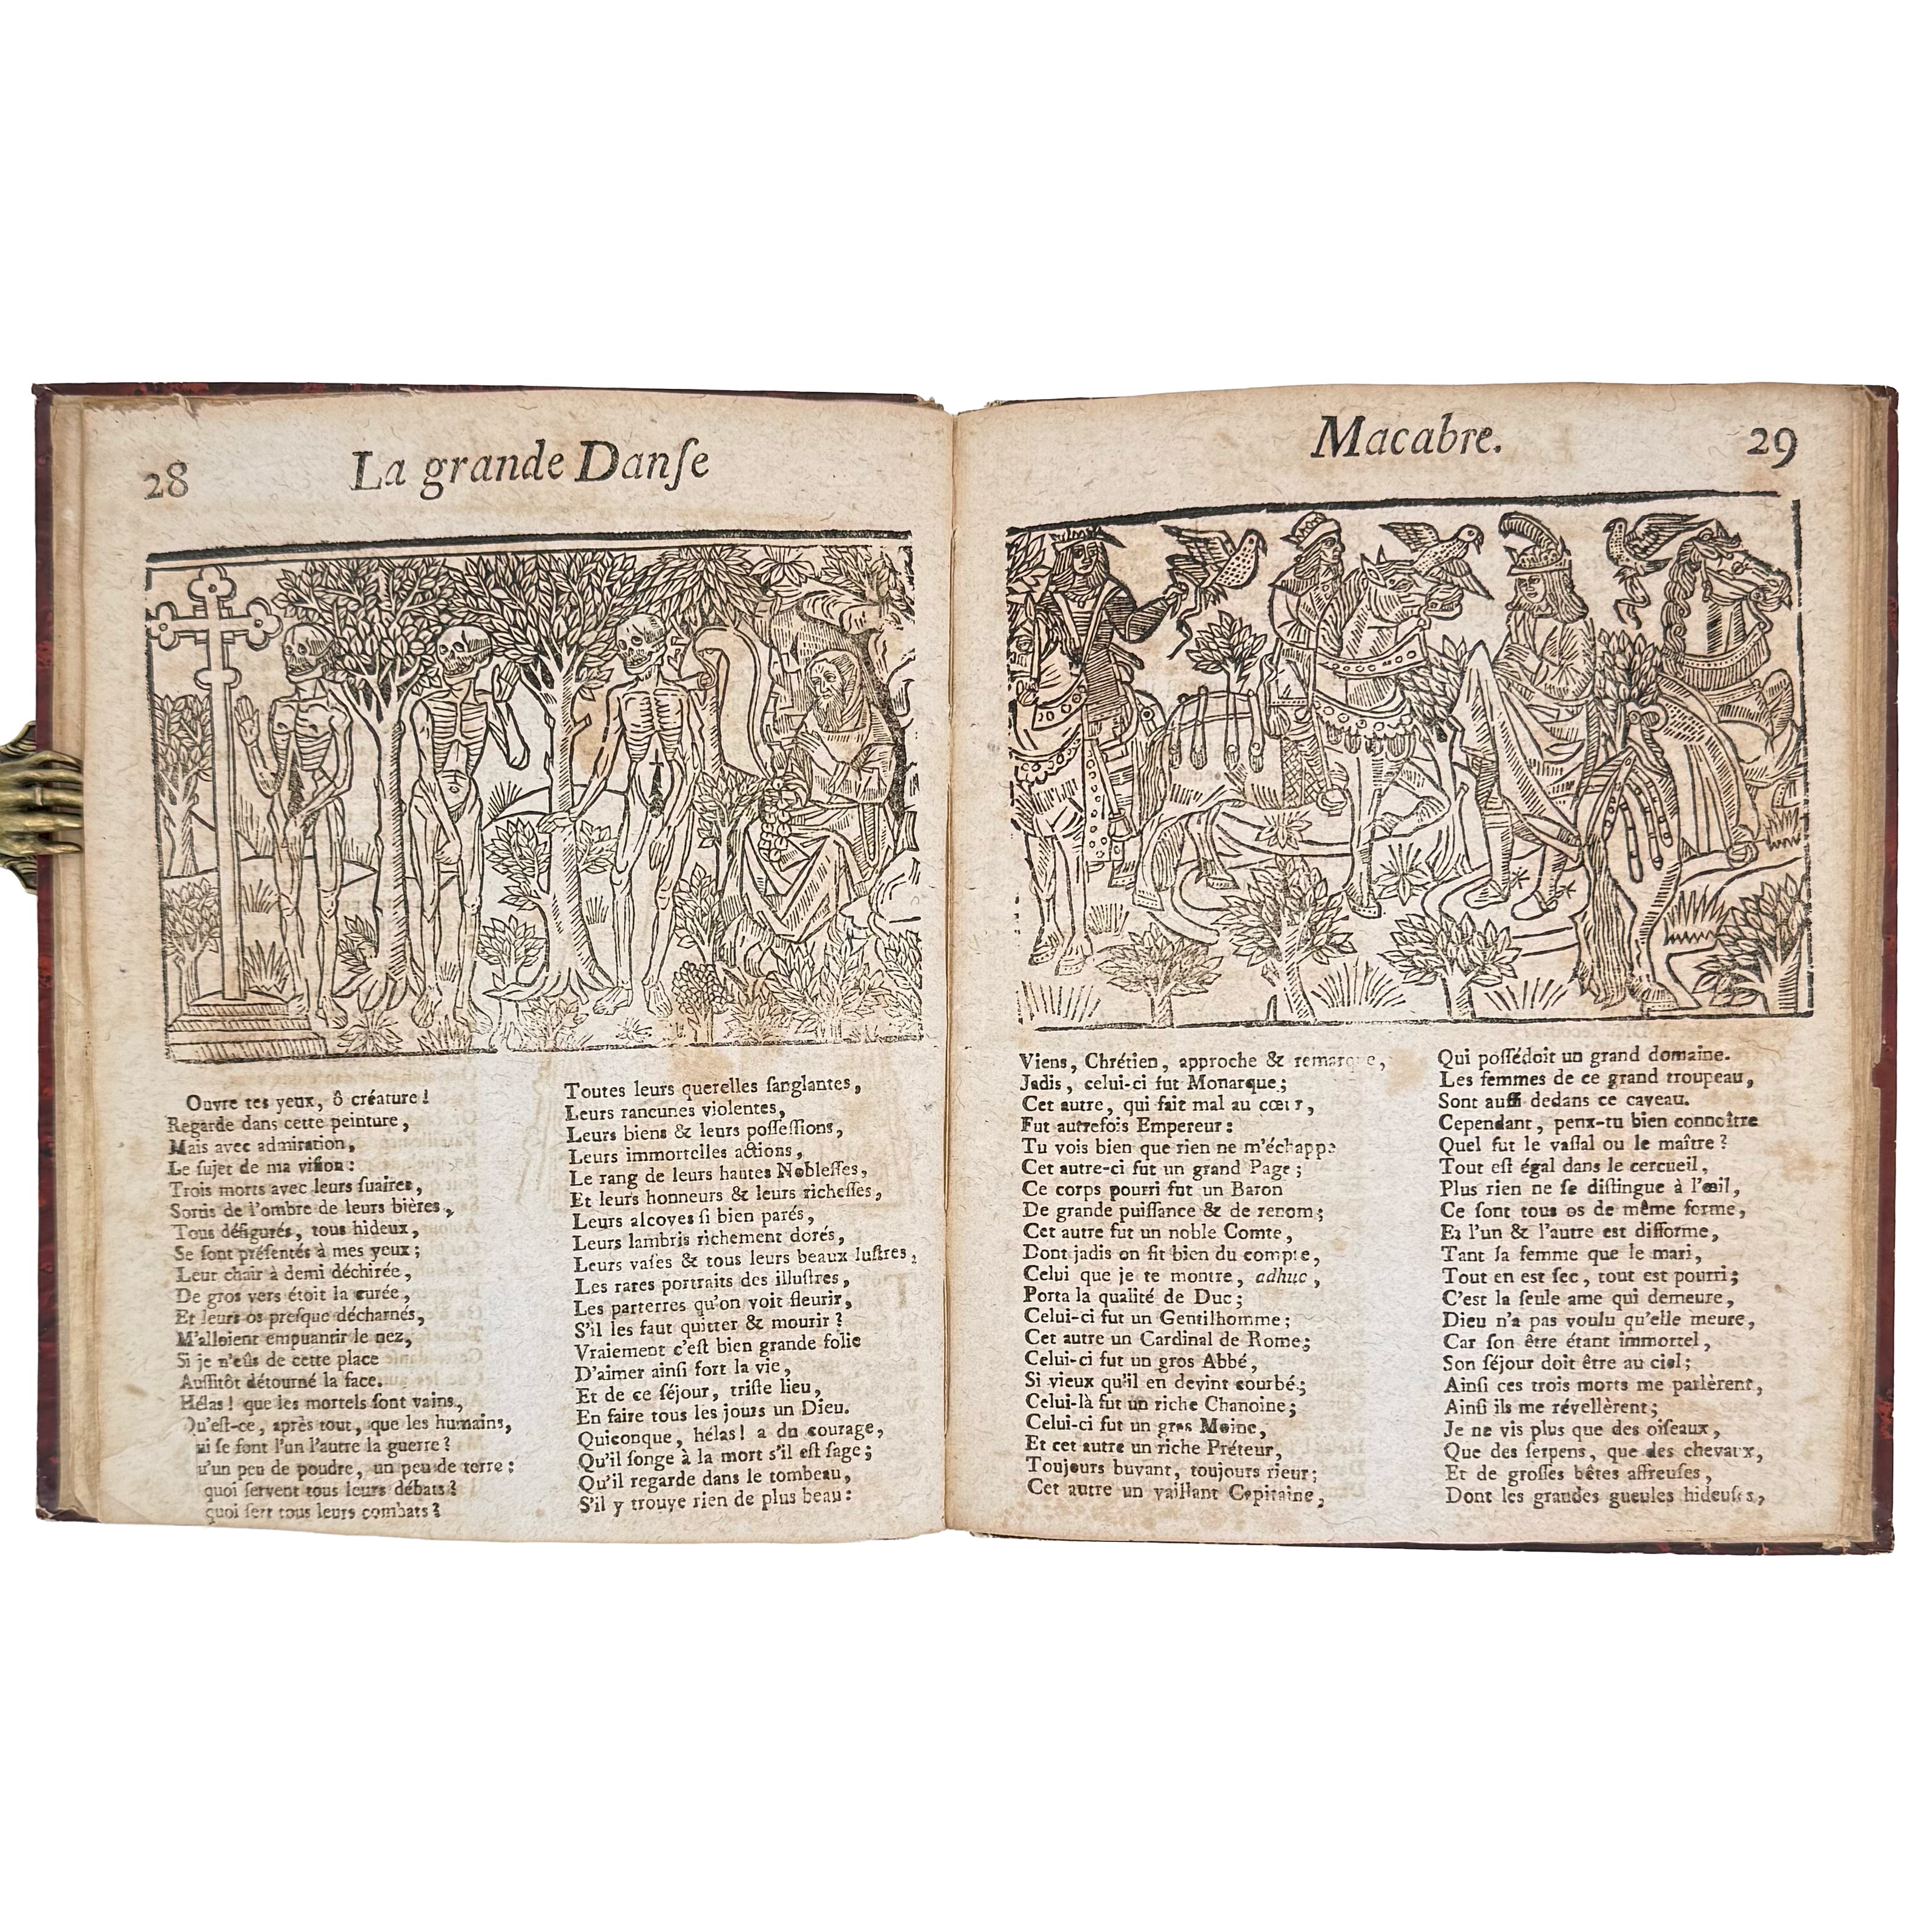 28
La grande Danſe
Ouvre tes yeux, ô créature!
Regarde dans cette peinture,
Mais avec admiration,
Le ſujet de ma viſion:
Trois morts avec leurs ſuaires,
Sortis de l'ombre de leurs bières,
Tous défigurés, tous hideux,
Se ſont préſentés à mes yeux;
Leur chair à demi déchirée,
De gros vers étoit la curée,
Et leurs os preſque décharnés,
M'alloient empuantir le nez,
Si je n'eûs de cette place
Auſſitôt détourné la face.
Hélas! que les mortels ſont vains,
Qu'eſt-ce, après tout, que les humains,
ui ſe font l'un l'autre la guerre?
u'un peu de poudre, un peu de terre;
quoi ſervent tous leurs débats?
quoi ſert tous leurs combats?
Toutes leurs querelles ſanglantes,
Leurs rancunes violentes,
Leurs biens & leurs poſſeſſions,
Leurs immortelles actions,
Le rang de leurs hautes Nobleſſes,
Et leurs honneurs & leurs richeſſes,
Leurs alcoves ſi bien parés,
Leurs lambris richement dorés,
Leurs vaſes & tous leurs beaux luſtres,
Les rares portraits des illuſtres,
Les parterres qu'on voit fleurir,
S'il les faut quitter & mourir?
Vraiement c'eſt bien grande folie
D'aimer ainſi fort la vie,
Et de ce ſéjour, triſte lieu,
En faire tous les jours un Dieu.
Quiconque, hélas! a du courage,
Qu'il ſonge à la mort s'il eſt ſage;
Qu'il regarde dans le tombeau,
S'il y trouve rien de plus beau:
Macabre.
29
Viens, Chrétien, approche & remarque,
Jadis, celui-ci fut Monarque;
Cet autre, qui fait mal au cœur,
Fut autrefois Empereur:
Tu vois bien que rien ne m'échappe
Cet autre-ci fut un grand Page;
Ce corps pourri fut un Baron
De grande puiſſance & de renom;
Cet autre fut un noble Comte,
Dont jadis on fit bien du compte,
Celui que je te montre, adhuc,
Porta la qualité de Duc;
Celui-ci fut un Gentilhomme;
Cet autre un Cardinal de Rome;
Celui-ci fut un gros Abbé,
Si vieux qu'il en devint courbé;
Celui-là fut un riche Chanoine;
Celui-ci fut un gros Moine,
Et cet autre un riche Préteur,
Toujours buvant, toujours rieur;
Cet autre un vaillant Capitaine,
Qui poſſédoit un grand domaine.
Les femmes de ce grand troupeau,
Sont auſſi dedans ce caveau.
Cependant, penx-tu bien connoître
Quel fut le vaſſal ou le maître?
Tout eſt égal dans le cercueil,
Plus rien ne ſe diſtingue à l'œil,
Ce ſont tous os de même forme,
Et l'un & l'autre eſt difforme,
Tant la femme que le mari,
Tout en eſt ſec, tout eſt pourri;
C'eſt la ſeule ame qui demeure,
Dieu n'a pas voulu qu'elle meure,
Car ſon être étant immortel,
Son ſéjour doit être au ciel;
Ainſi ces trois morts me parlèrent,
Ainſi ils me révellèrent;
Je ne vis plus que des oiſeaux,
Que des ſerpens, que des chevaux,
Et de groſſes bêtes affreuſes,
Dont les grandes gueules hideuſes,